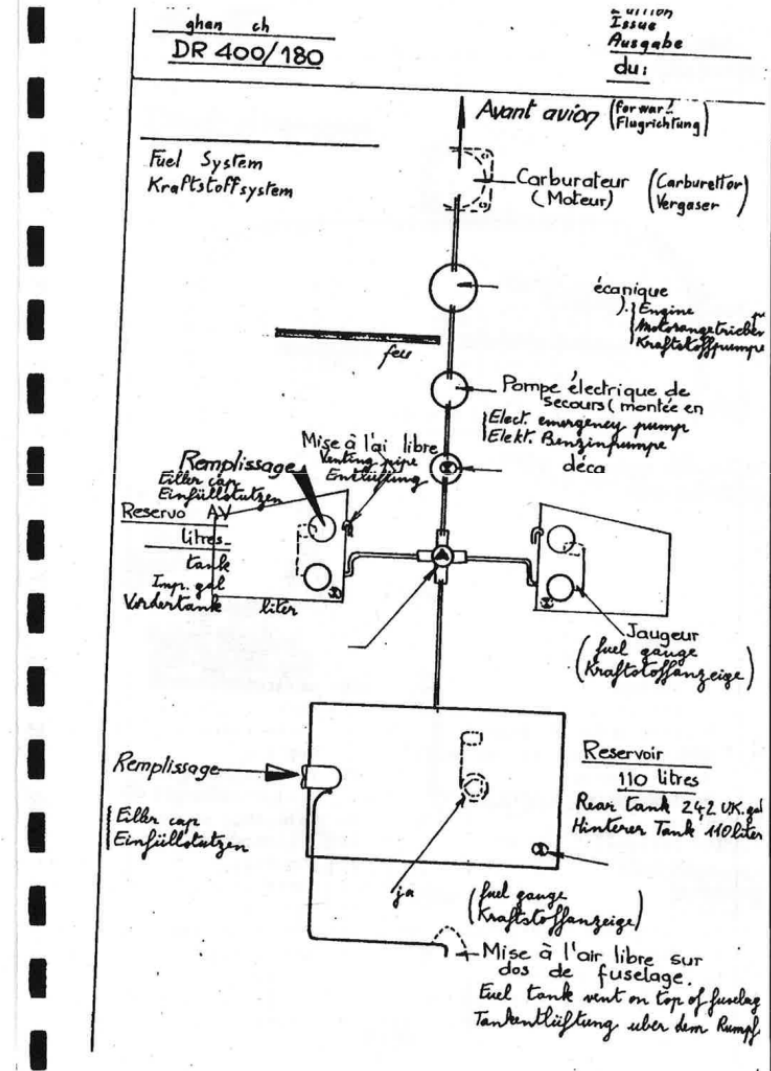 ghan ch
DR 400/180
Issue
Ausgabe
du:
Avant avion (forward
Flugrichtung)
Fuel System
Kraftstoffsystem
Carburateur (Carburettor)
(Moteur) (Vergaser
écanique
). Engine pu
Motorangetrieben
Kraftstoffpumpe
feu
Pompe électrique de
secours (montée en
Elect. emergency pump
Elekt. Benzinpumpe
déca
Mise à l'ai libre
Venting pipe
Entlüftung
Remplissage
Filler cap
Einfüllstutzen
Reservo AV
litres
tank
Imp. gal
Vordertank liter
Jaugeur
(fuel gauge
Kraftstoffanzeige)
Remplissage
Filler cap
Einfüllstutzen
Reservoir
110 litres
Rear tank 24,2 UK.gal
Hinterer Tank 110 liter
ja
(fuel gauge
Kraftstoffanzeige)
Mise à l'air libre sur
dos de fuselage.
Fuel tank vent on top of fuselag
Tankentlüftung uber dem Rumpf